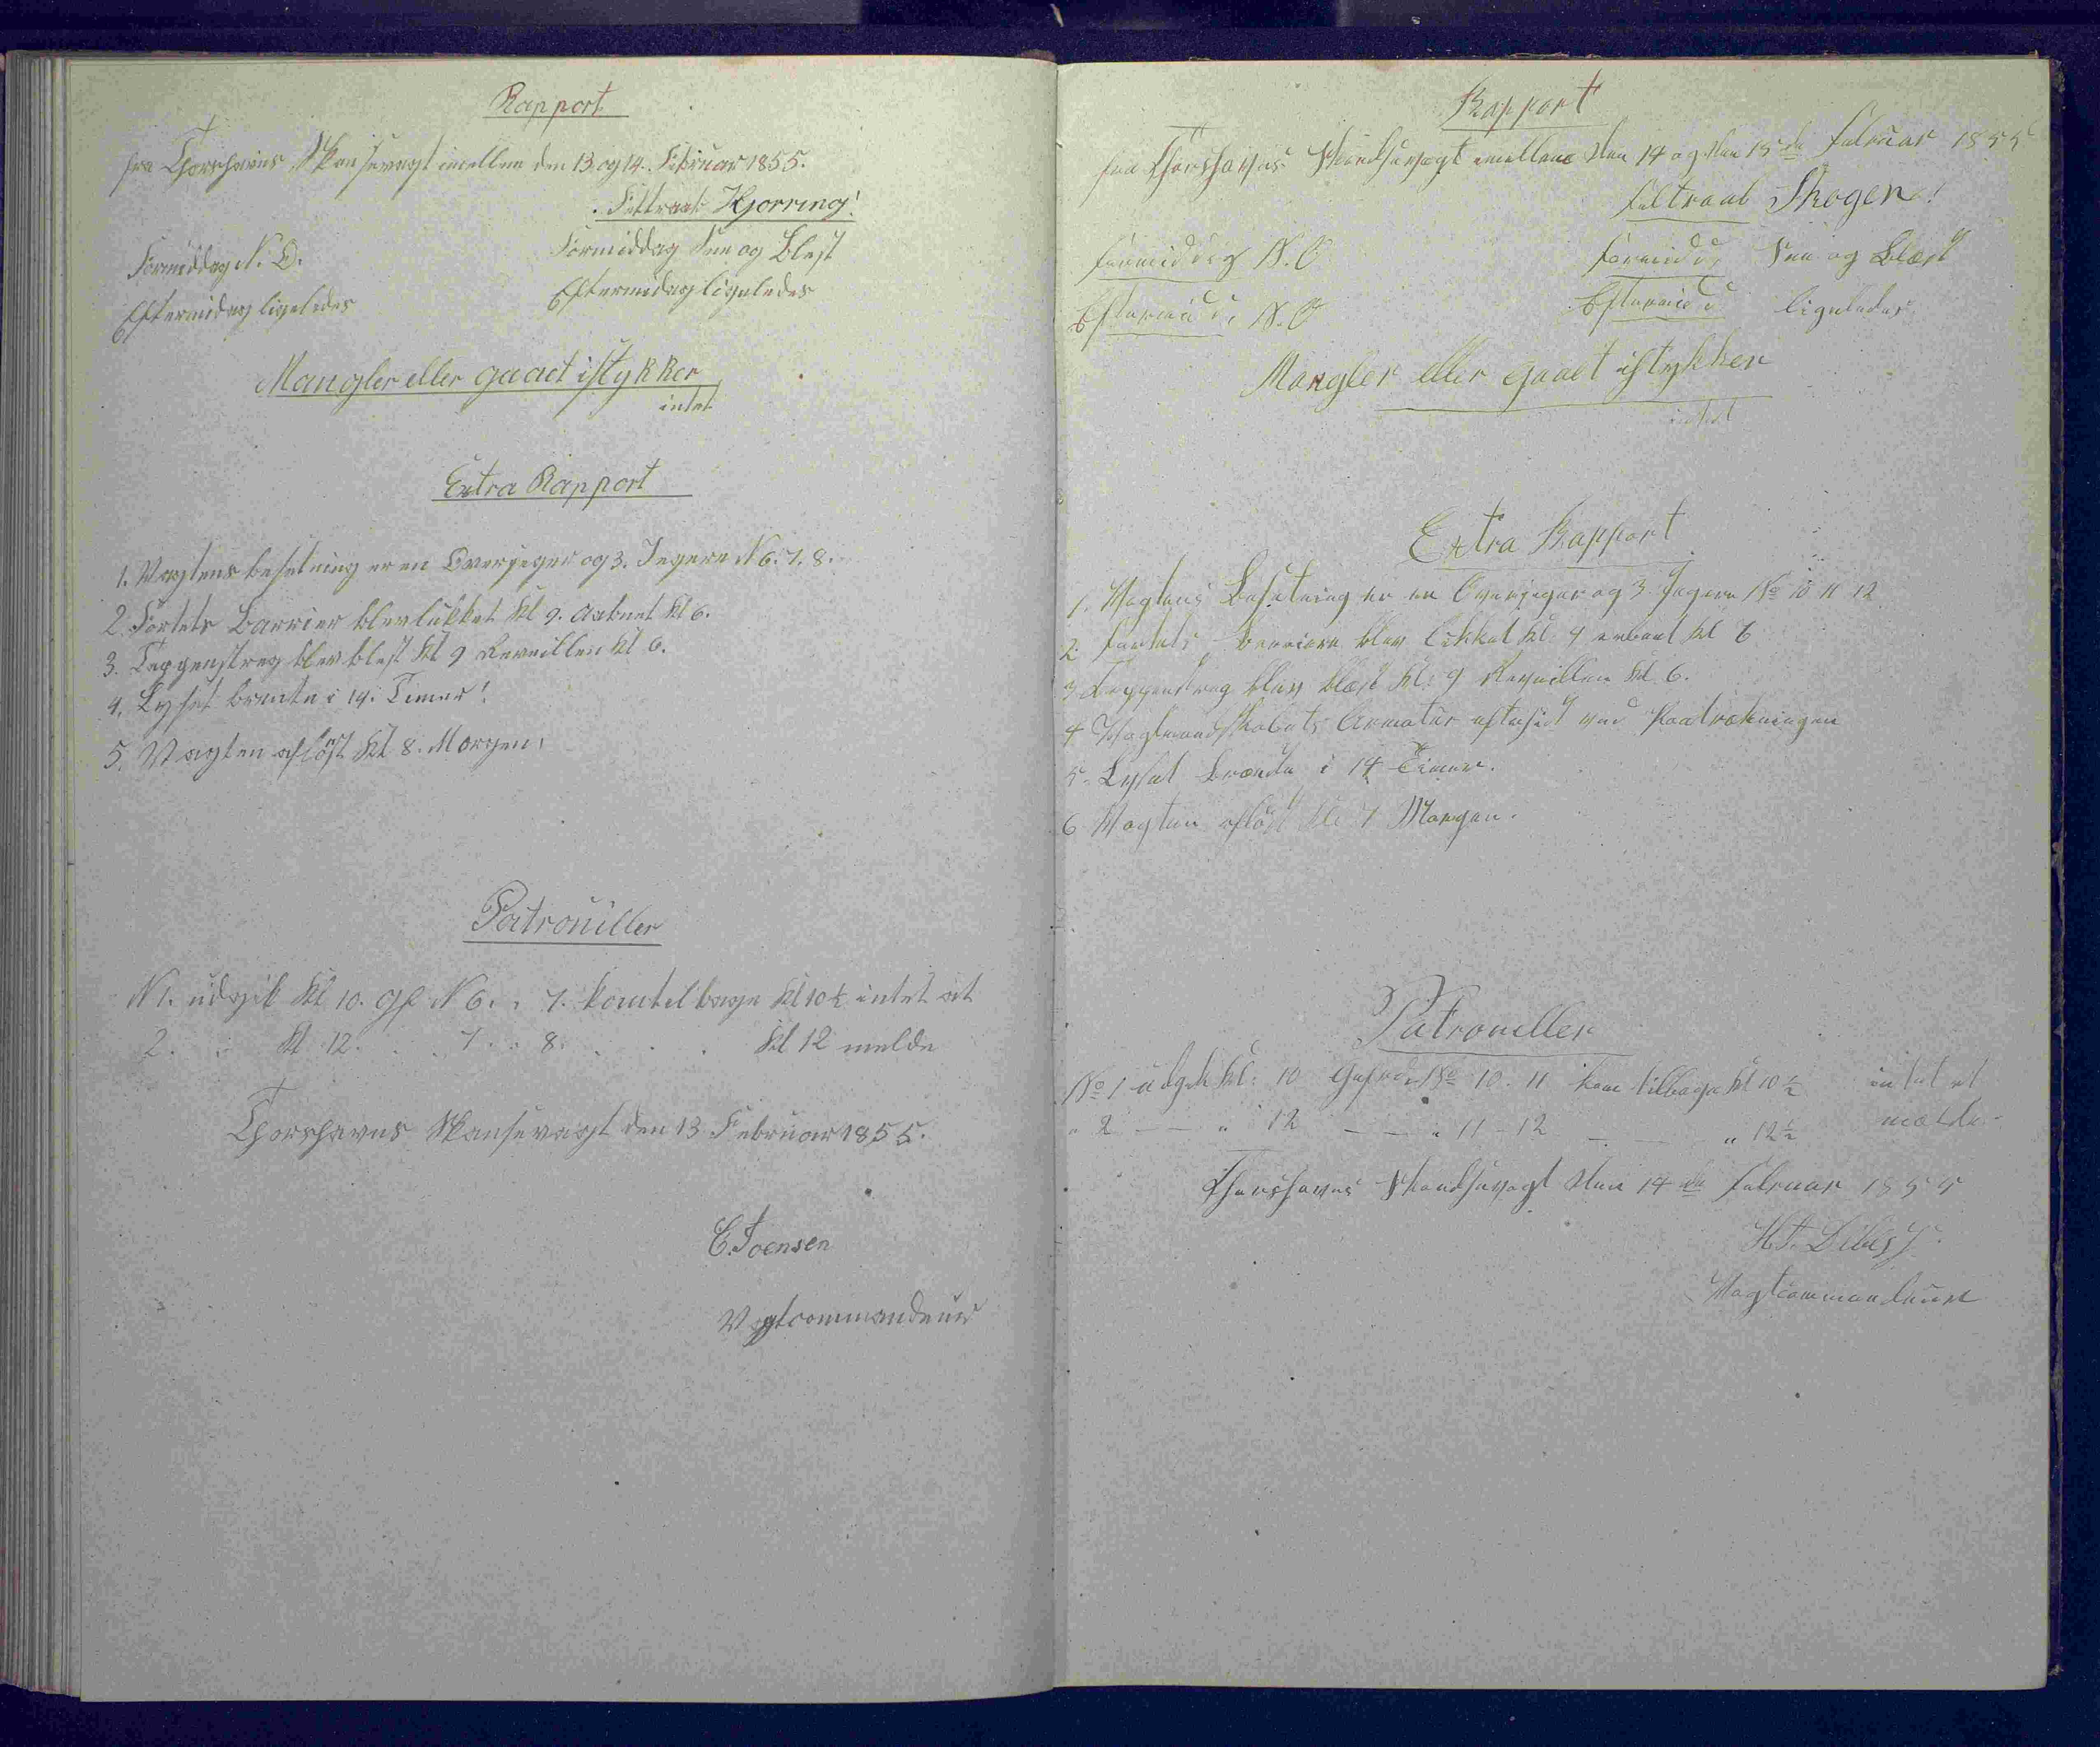 Rapport
fra Thorshavns Skansevagt imellem den 13 og 14. Februar 1855.
Feltraab Hjorring!
Formiddag N. O.
Formiddag Sne og Blest
Eftermidag ligeledes
Eftermidag ligeledes
Mangler eller gaaet istykker
intet
Extra Rapport
1. Vagtens besetning er en Overjeger og 3. Jegere N 6. 7. 8.
2. Fortets Barrier blev lukket Kl 9. aabnet Kl 6.
3. Tappenstreg blev blest Kl 9 Reveillen Kl 6.
4. Lyset brente i 14. Timer!
5. Vagten afløst Kl 8. Morgen.
Patrouiller
N 1. udgik Kl 10. Gf N 6. . 7. kom tilbage Kl 10½ intet at
2. . Kl 12. . . 7. . 8. . . . Kl 12 melde
Thorshavns Skansevagt den 13 Februar 1855.
C. Joensen
Vagtcommandeur
Rapport
fra Thorshavns Skandsevagt imellem den 14 og den 15de Februar 1855
Feltraab Skagen!
Formiddag N. O
Formidd, Sne og Blæst
Eftermidd, N. O
Eftermidd ligeledes
Mangler eller gaaet istykker
intet
Extra Rapport
1. Vagtens Besetning er en Overjeger og 3 Jegere No 10 11 12
2. Fortets Barriere blev lukket Kl. 9 aabnet Kl 6
3 Tappenstreg blev blæst Kl: 9 Reveillen Kl 6.
4 Vagtmandskabets Armatur efterset ved Paatrækningen
5. Lyset brændte i 14 Timer.
6 Vagten afløst Kl: 7 Morgen.
Patrouiller
No 1 udgik Kl: 10 Gefrd. No 10. 11 kom tilbage Kl 10½ intet at
" 2 — " 12 — " 11 - 12 — — " 12½ mælde
Thorshavns Skandsevagt den 14de Februar 1855
H. J. Debes
Vagtcommandeur